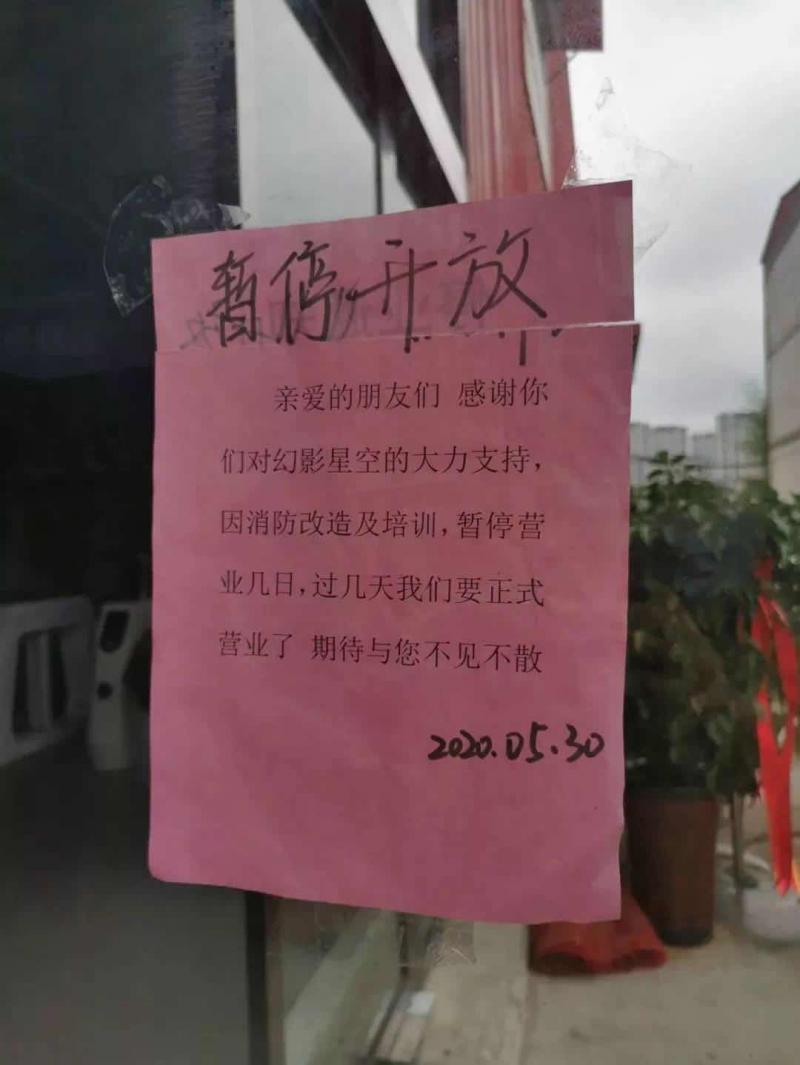 暂停开放
亲爱的朋友们 感谢你
们对幻影星空的大力支持，
因消防改造及培训，暂停营
业几日，过几天我们要正式
营业了 期待与您不见不散
2020.05.30